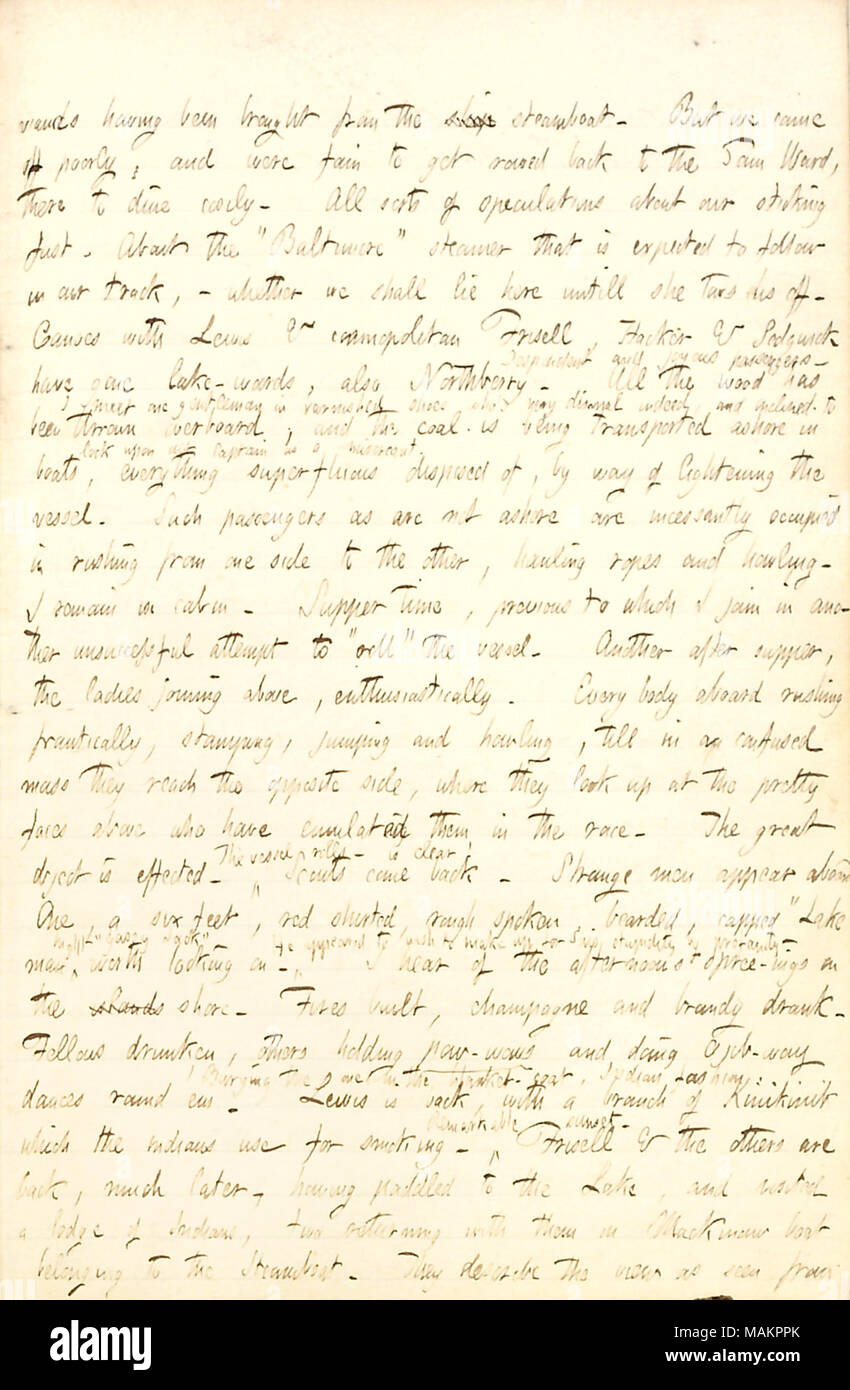 having been brought from the ship steamboat. But we came
off poorly, and were fain to get rowed back to the Sam Ward,
there to dine cosily. All sorts of speculations about our sticking
fast. About the "Baltimore" steamer that is expected to follow
in our track, - whether we shall lie here untill she tows us off.
Canoes with Lewis & cosmopolitan Frisell, Hacker & Sedgwick
Despondent and joyous passengers -
have gone lake-wards, also Northberry. All the wood has
I meet one gentleman in varnished shoes who's very dismal indeed, and inclined to
been thrown overboard, and the coal is being transported ashore in
look upon our captain as a miscreant.
boats, everything superfluous disposed of, by way of lightening the
vessel. Such passengers as are not ashore are incessantly occupied
in rushing from one side to the other, hauling ropes and howling.
I remain in cabin. Supper time, previous to which I join in ano-
ther unsuccessful attempt to "roll" the vessel. Another after supper,
the ladies joining above, enthusiastically. Every body aboard rushing
frantically, jumping and howling, till in a confused
mass they reach the opposite side, where they look up at the pretty
faces above who have emulated them in the race. The great
The vessel rolls - is clear!
object is effected. Scouts come back. Strange men appear aboard
One, a six feet, red shirted, rough spoken, bearded, capped "Lake
He appeared to wish to make up for stupidity by profanity -
man", worth looking on. I hear of the afternoon's spree-ings on
the islands shore. Fires built, champagne and brandy drank.
Fellows drunken, others holding pow-wows and doing Ojib-way
in the blanket-coat, Indian fashion:
dances round em. Lewis is back, with a branch of Kinikinik
Remarkable sunset -
which the indians use for smoking. Frisell & the others are
back, much later, having paddled to the Lake, and visited
a lodge of Indians, two returning with them in Mackinaw boat
belonging to the Steamboat. They describe the view as seen from
alamy
a
Image ID: MAKPPK
www.alamy.com